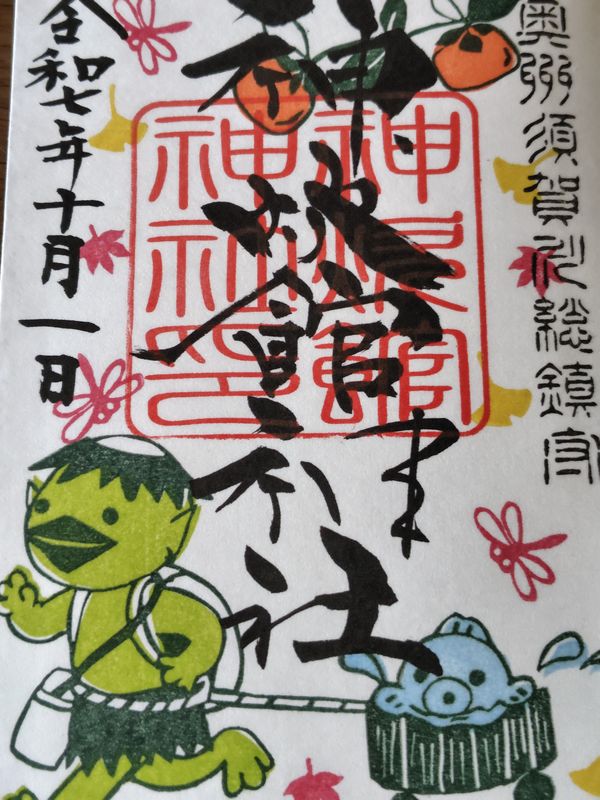 奥州須賀川総鎮守
神炊館神社
神炊館
神社印
令和七年十月一日